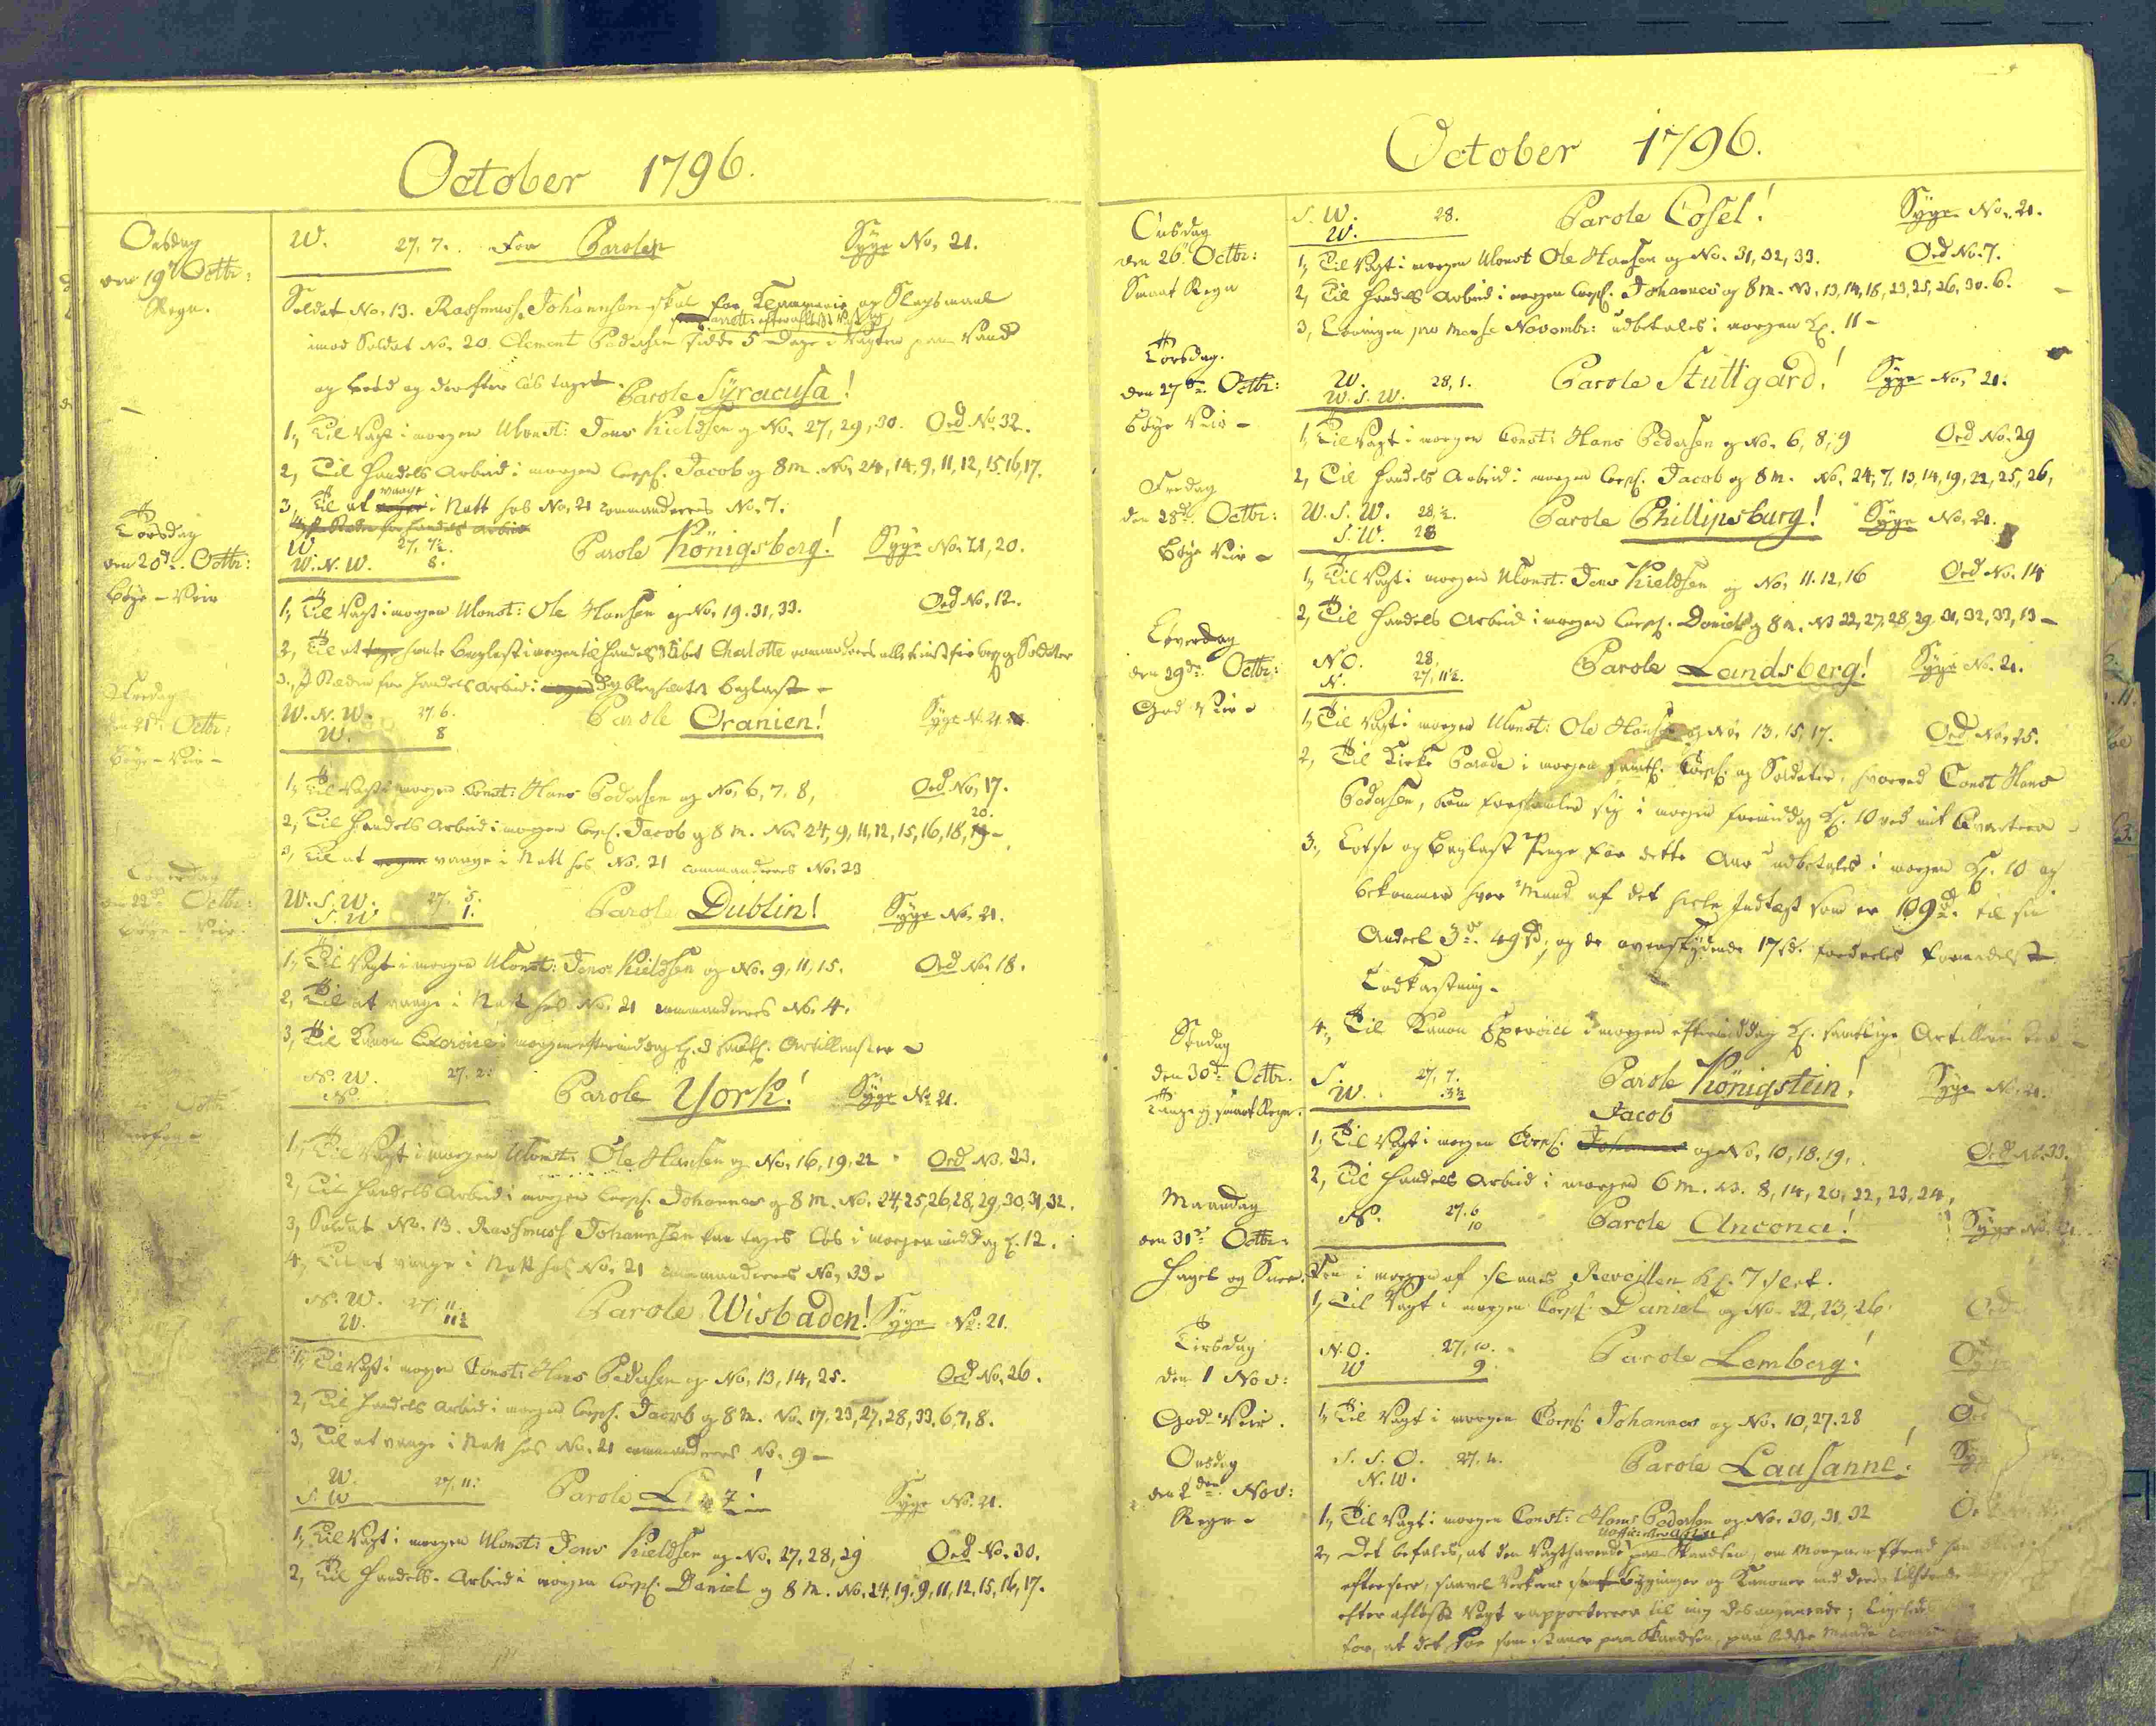 October 1796.
Onsdag
den 19de Octbr:
Regn.
W. 27, 7. For Parolen Syge No. 21.
Soldat No. 13. Rasmuss Johannesen skal for og Slagsmaal
imod Soldat No. 20 Clement Pedersen sidde 5 Dage i Vagten paa Vand
og brød og derefter løs taget.
Parole Syracusa!
1, Til Vagt i morgen Uconst: Jens Kieldsen og No. 27, 29, 30. Ord No. 32.
2, Til Handels Arbeid i morgen Corpl. Jacob og 8 m. No. 24, 14, 9, 11, 12, 15, 16, 17.
3, Til at vaage i Natt hos No. 21 commanderes No. 7.
Torsdag
den 20de Octbr:
Bøye-Veir
W. 27, 7½.
W.N.W. 8.
Parole Königsberg! Syge No. 21, 20.
1, Til Vagt i morgen Uconst: Ole Hansen og No. 19. 31, 33. Ord No. 12.
2, Til at hente Baglast i morgen til Handels Skibet Charlotte commanderes
3, Handels Arbeid Baglast
Fredag
den 21de Octbr:
Bøye-Veir
W.N.W. 27. 6.
W. 8
Parole Oranien! Syge No. 21
1, Til Vagt i morgen Const: Hans Pedersen og No. 6, 7, 8, Ord No. 17.
2, Til Handels Arbeid i morgen Corpl. Jacob og 8 m. No. 24, 9, 11, 12, 15, 16, 18, 20.
3, Til at vaage i Natt hos No. 21 commanderes No. 23
Løverdag
den 22de Octbr:
Bøye-Veir
W.S.W. 27. 5.
S.W 1.
Parole Dublin! Syge No. 21.
1, Til Vagt i morgen Uconst: Jens Kieldsen og No. 9, 11, 15. Ord No. 18.
2, Til at vaage i Natt hos No. 21 commanderes No. 4.
3, Til Kanon Exercice i morgen eftermiddag Kl. 3 samtl. Artillerister
Octbr
N.W. 27. 2:
Parole York! Syge No 21.
1, Til Vagt i morgen Uconst: Ole Hansen og No. 16, 19, 22 Ord No. 23.
2, Til Handels Arbeid i morgen Corpl. Johannes og 8 m. No. 24, 25, 26, 28, 29, 30, 31, 32.
3, Soldat No. 13. Rasmuss Johannsen kan tages løs i morgen middag Kl. 12.
4, Til at vaage i Natt hos No. 21 commanderes No. 33.
N.W. 27, 11.
W. 11½
Parole Wisbaden! Syge No: 21.
1, Til Vagt i morgen Const: Hans Pedersen og No. 13, 14, 25. Ord No. 26.
2, Til Handels Arbeid i morgen Corpl. Jacob og 8 m. No. 17, 23, 27, 28, 33, 6, 7, 8.
3, Til at vaage i Natt hos No. 21 commanderes No. 9
W. 27, 11:
S.W
Parole Syge No. 21.
1, Til Vagt i morgen Uconst: Jens Kieldsen og No. 27, 28, 29 Ord No. 30.
2, Til Handels-Arbeid i morgen Corpl. Daniel og 8 m. No. 24, 19, 9, 11, 12, 15, 16, 17.
October 1796.
Onsdag
den 26de Octbr:
Smaat Regn
S.W. 28.
W.
Parole Cosel! Syge No. 21.
1, Til Vagt i morgen Uconst Ole Hansen og No. 31, 32, 33. Ord No. 7.
2, Til Handels Arbeid i morgen Corpl. Johannes og 8 m. No. 13, 14, 18, 23, 25, 26, 30. 6.
3, Lønningen pro Mense Novembr: udbetales i morgen Kl. 11
Torsdag.
den 27de Octbr:
Bøye Veir
W. 28, 1.
W.S.W.
Parole Stuttgard! Syge No. 21.
1, Til Vagt i morgen Const: Hans Pedersen og No. 6, 8, 9 Ord No. 29
2, Til Handels Arbeid i morgen Corpl. Jacob og 8 m. No. 24, 7, 13, 14, 19, 22, 25, 26,
Fredag
den 28de Octbr:
Bøye Veir
W.S.W. 28, ½.
S.W. 28
Parole Phillipsburg! Syge No. 21.
1, Til Vagt i morgen Uconst: Jens Kieldsen og No. 11. 12, 16 Ord No. 14
2, Til Handels Arbeid i morgen Corpl. Daniel og 8 m. No 22, 27, 28, 29, 31, 32, 33, 13
Løverdag
den 29de Octbr:
God Veir
N.O. 28,
N. 27, 11½.
Parole Landsberg! Syge No. 21.
1, Til Vagt i morgen Uconst: Ole Hansen og No. 13. 15, 17. Ord No. 25.
2, Til Kirke Parade i morgen samtl. Corpl. og Soldater, hvorved Const Hans
Pedersen, som forsamler sig i morgen formiddag Kl. 10 ved mit Qvarteer
3, og Baglast Penge for dette Aar udbetales i morgen Kl. 10 og
bekommer hver Mand af det hele Indtægt som er 109 til sin
Andeel 3 49 ; og de overskydende 17 fordeles formedelst
Lodkastning.
4, Til Kanon Exercice i morgen eftermiddag Kl. samtlige
Søndag
den 30te Octbr.
Taage og smaat Regn.
S. 27, 7.
W. 3½
Parole Königstein! Syge No. 21.
Jacob
1, Til Vagt i morgen Corpl. Johannes og No. 10, 18. 19, Ord No. 33.
2, Til Handels Arbeid i morgen 6 m. No. 8, 14, 20, 22, 23, 24,
Maandag
den 31te Octbr:
Hagel og Snee.
N. 27. 6
10
Parole Ancona! Syge No. 21.
Fra i morgen af slaaes Reveillen Kl. 7 slet.
1, Til Vagt i morgen Corpl: Daniel og No. 22, 23, 26 Ord
Tirsdag
den 1 Nov:
God-Veir.
N.O. 27, 10.
W 9.
Parole Lemberg!
1, Til Vagt i morgen Corpl: Johannes og No. 10, 27. 28 Ord
Onsdag
den 2den Nov:
Regn
S.S.O. 27, 4.
N.W.
Parole Lausanne! Syge
1, Til Vagt i morgen Const: Hans Pedersen og No. 30, 31, 32
2, Det befales, at den Vagthavende paa Skandsen, om Morgenen
efterseer, saavel og Kanoner
efter afløst Vagt rapporterer til mig desangaaende;
for, at det som staaer paa Skandsen, paa bedste Maade